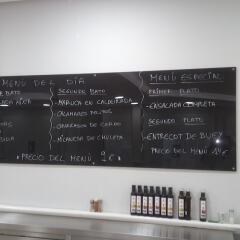 MENU DEL DÍA
PLATO
SEGUNDO PLATO
- MARUCA EN CALDEIRADA
- CALAMARES FRITOS
- CHURRASCO DE CERDO
- MILANESA DE CHULETA
*PRECIO DEL MENÚ 9€*
MENÚ ESPECIAL
PRIMER PLATO
- ENSALADA COMPLETA
SEGUNDO PLATO
- ENTRECOT DE BUEY
PRECIO DEL MENÚ 14€